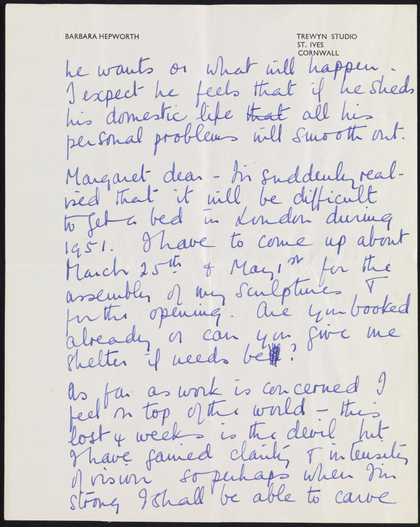 BARBARA HEPWORTH
TREWYN STUDIO
ST. IVES
CORNWALL
he wants or what will happen.
I expect he feels that if he sheds
his domestic life that all his
personal problems will smooth out.
Margaret dear – I'm suddenly real-
ised that it will be difficult
to get a bed in London during
1951. I have to come up about
March 25th & May 1st for the
assembly of my sculptures &
for the opening. Are you booked
already or can you give me
shelter if needs be?
As far as work is concerned I
feel on top of the world – this
lost 4 weeks is the devil but
I have gained clarity & intensity
of vision so perhaps when I'm
strong I shall be able to carve